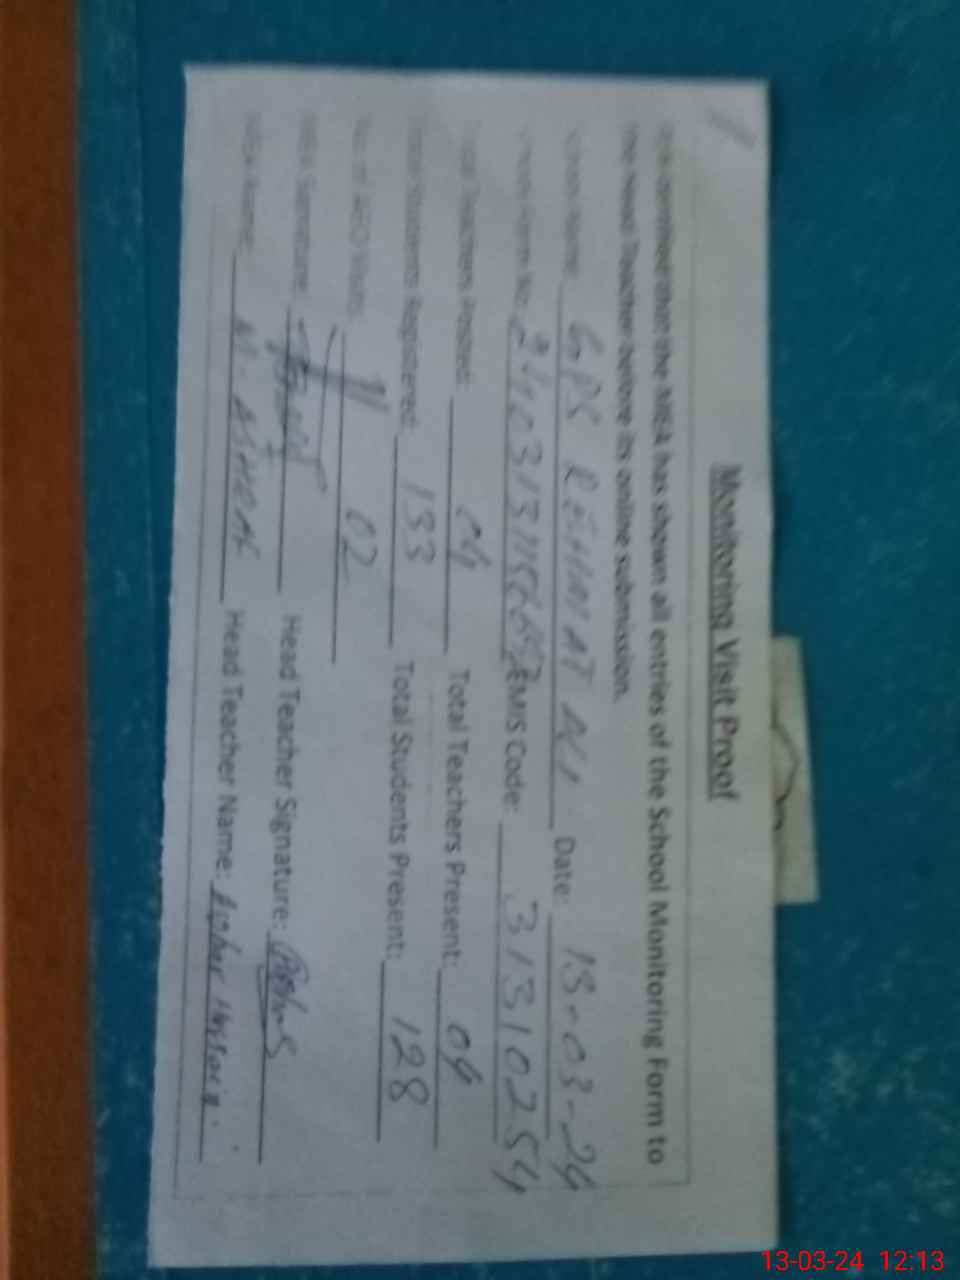 Monitoring Visit Proof
It is certified that the MEA has shown all entries of the School Monitoring Form to
the Head Teacher before its online submission.
School Name: GPS REHMAT ALI Date: 13-03-24
EMIS Code: 31310254
Total Teachers Posted: 04 Total Teachers Present: 04
Total Students Registered: 133 Total Students Present: 128
No. of AEO Visits: 02
MEA Signature: Head Teacher Signature:
MEA Name: M. ASHRAF Head Teacher Name: Hussain
13-03-24 12:13